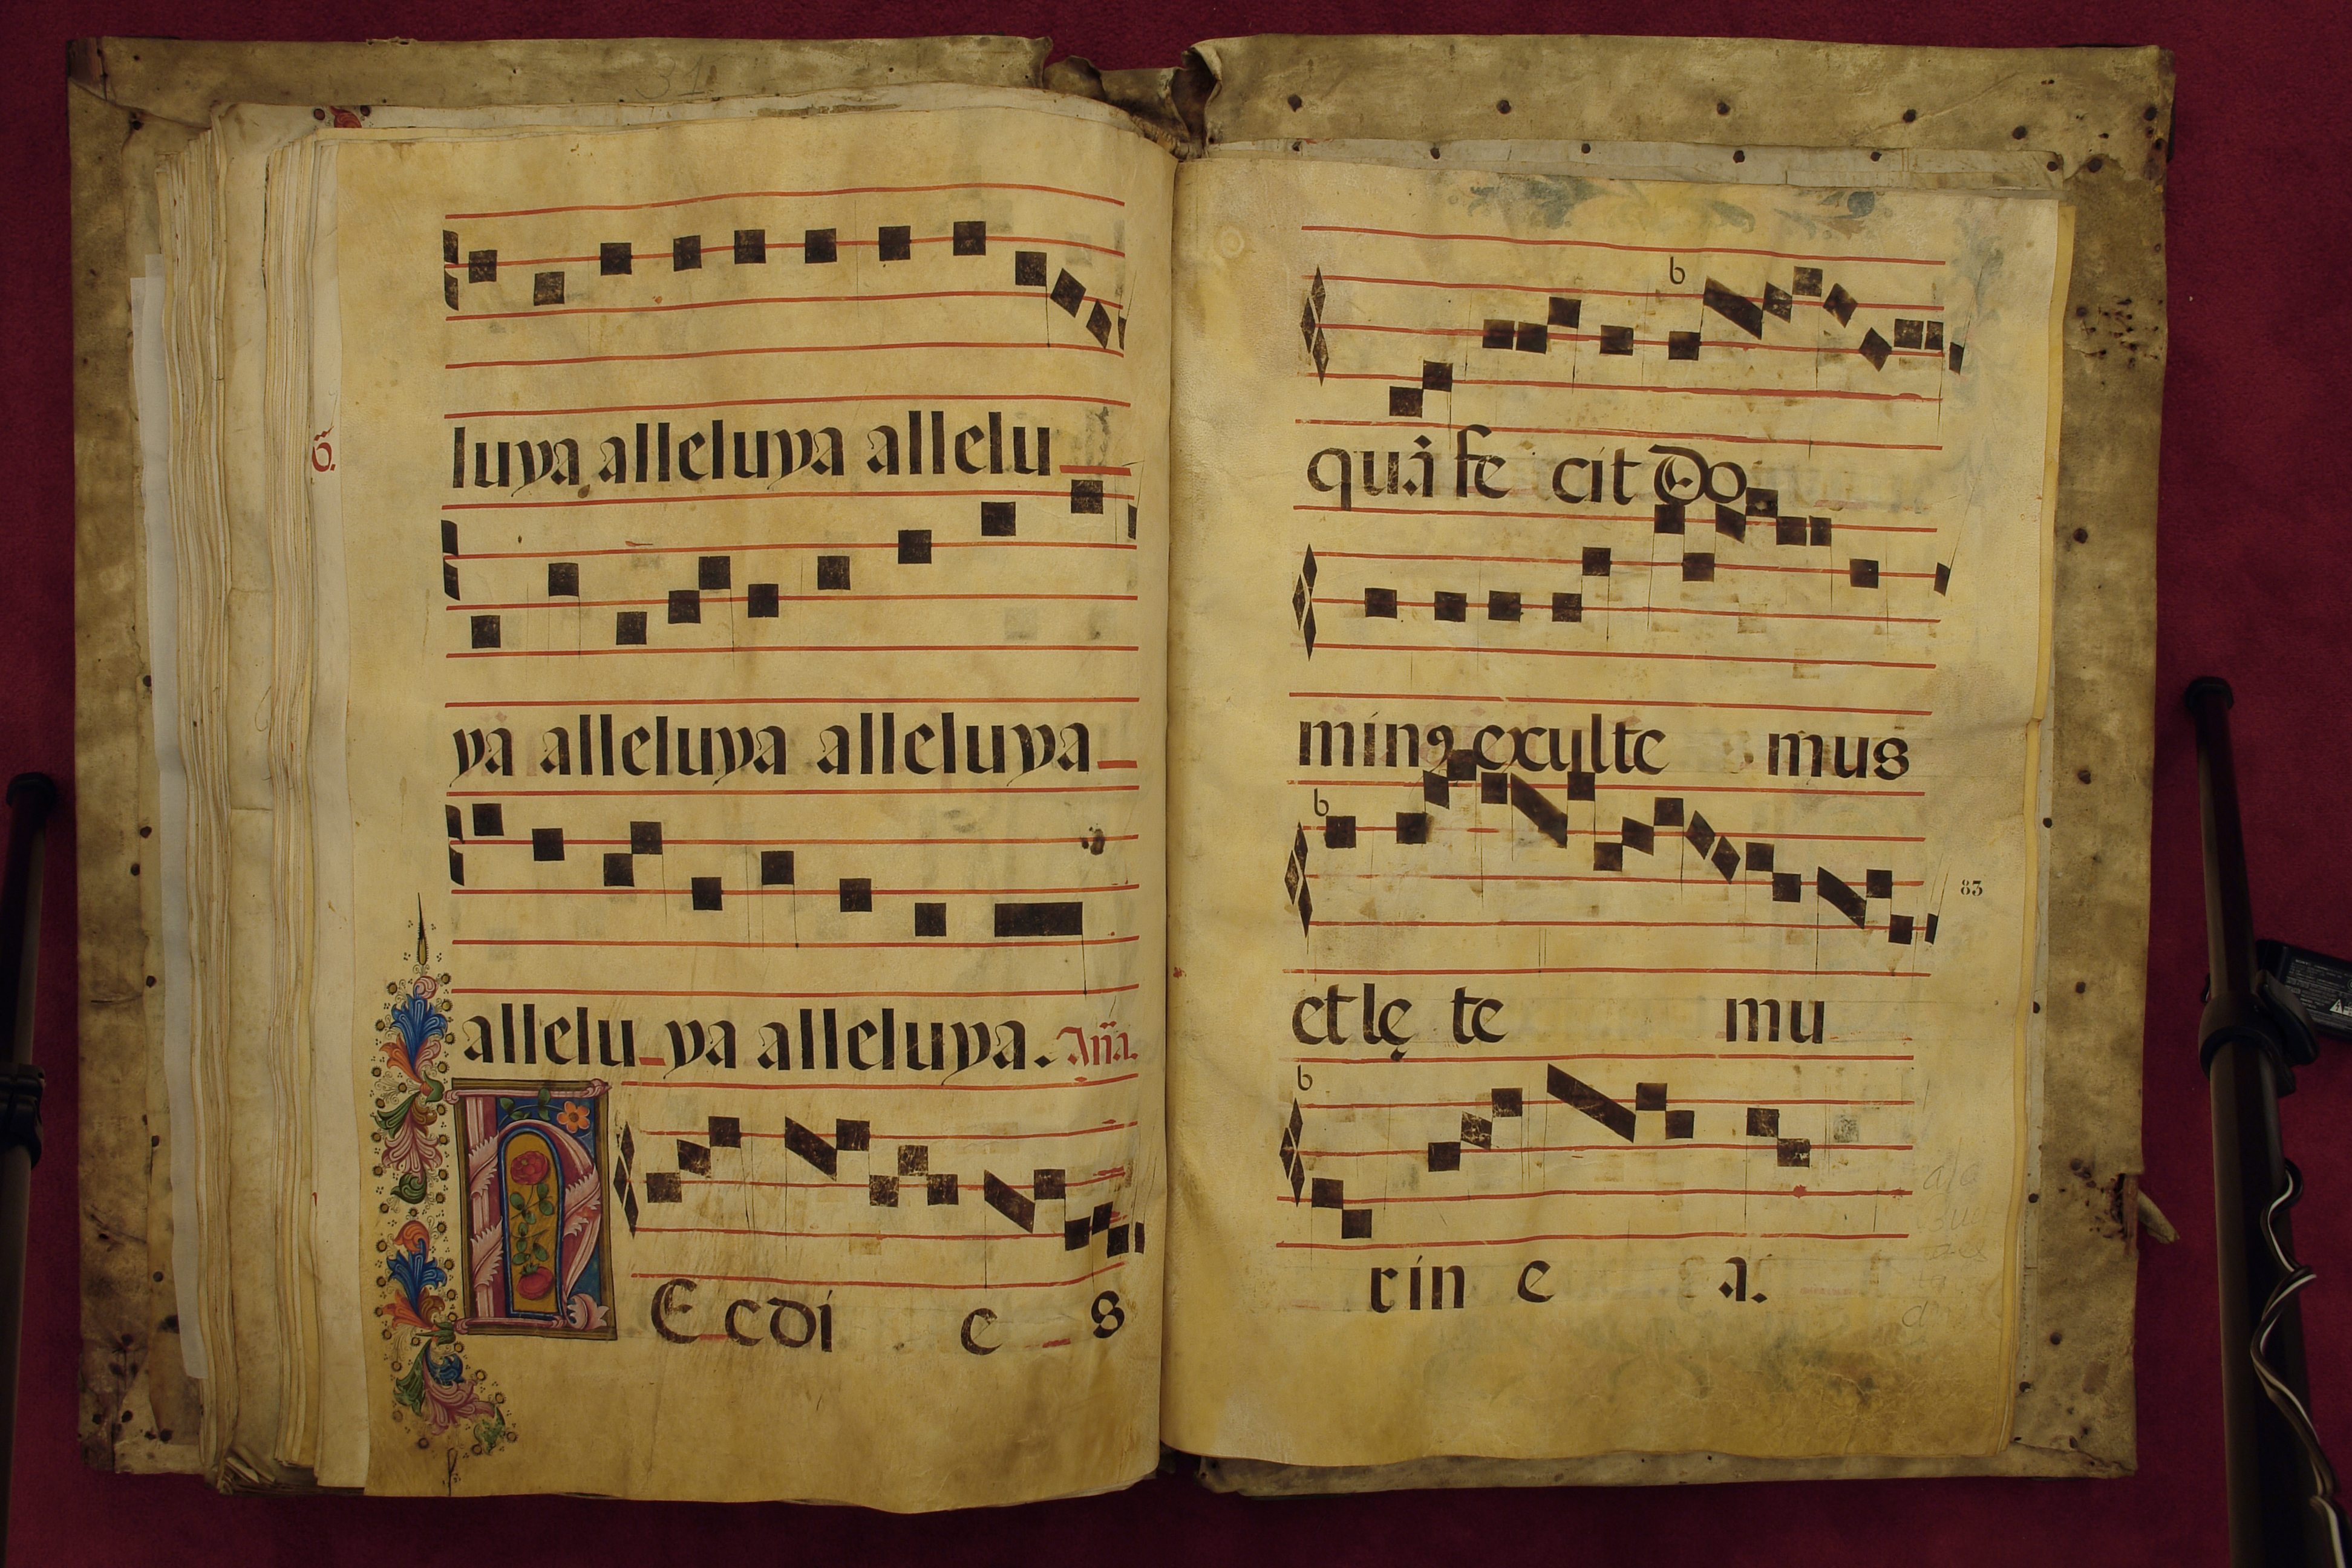 31
luya alleluya allelu
6.
ya alleluya alleluya
allelu ya alleluya. Aña.
H Ec di e s
quã fe cit Do
minꝯ exulte mus
et lę te mu
83
rin e a.